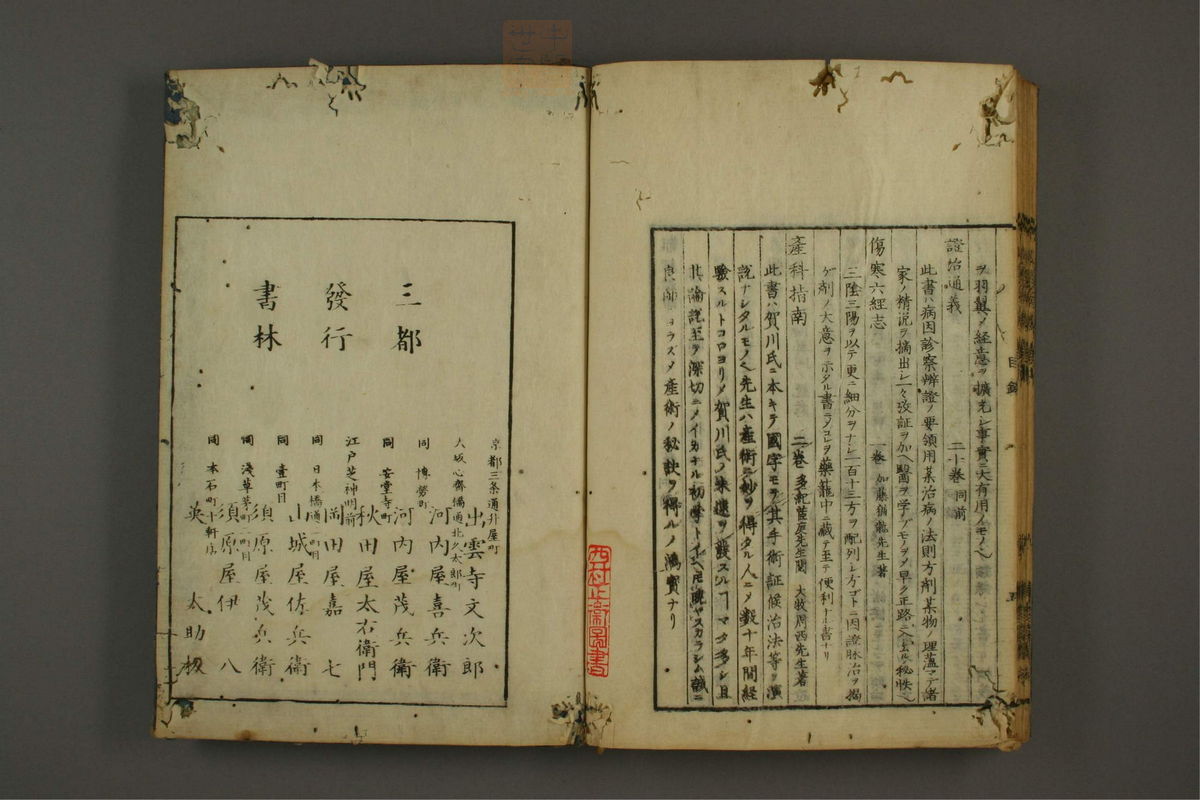 ヲ羽翼シ経意ヲ擴充シ事實ニ大有用ノモノ
證治通義
二十巻 同前
此書ハ病因診察辨證ノ要領用薬治病ノ法則方剤薬物ノ理蘊マデ諸
家ノ精説ヲ摘出シ一々攷証ヲ加ヘ醫ヲ学ブモノヲ早ク正路ニ入ルノ秘帙
傷寒六経志
一巻
先生著
三陰三陽ヲ以テ更ニ細分ヲナシ一百十三方ヲ配列シ方ゴトニ因證脉治ヲ揭
ゲ剤ノ大意ヲ示タル書ニシテコレヲ藥籠中ニ蔵テ至テ便利ノ書ナリ
產科指南
二巻 多紀茝庭先生閲 大牧周西先生著
此書ハ賀川氏ニ本キテ國字モテ其手術証候治法等ヲ演
說ナシタルモノ先生ハ產術ニ妙ヲ得タル人ニメ数十年間経
驗スルトコロヨリメ賀川氏ノ未逮ヲ
マタ多シ且
其論說至テ深切ニメイカナル初学トイヘ
誠ニ
良師ニヨラズメ產術ノ秘訣ヲ得ルノ鴻寶ナリ
目錄
五
三都
發行
書林
京都三条通升屋町
出雲寺文次郎
大坂心齋橋通北久太郎町
河内屋喜兵衛
同 博勞町
河内屋茂兵衛
同 安堂寺町
秋田屋太右衛門
江戸芝神明前
岡田屋嘉七
同 日本橋通二町目
山城屋佐兵衛
同 壹町目
須原屋茂兵衛
同 淺草茅町二町目
須原屋伊八
同 本石町十軒店
英大助板